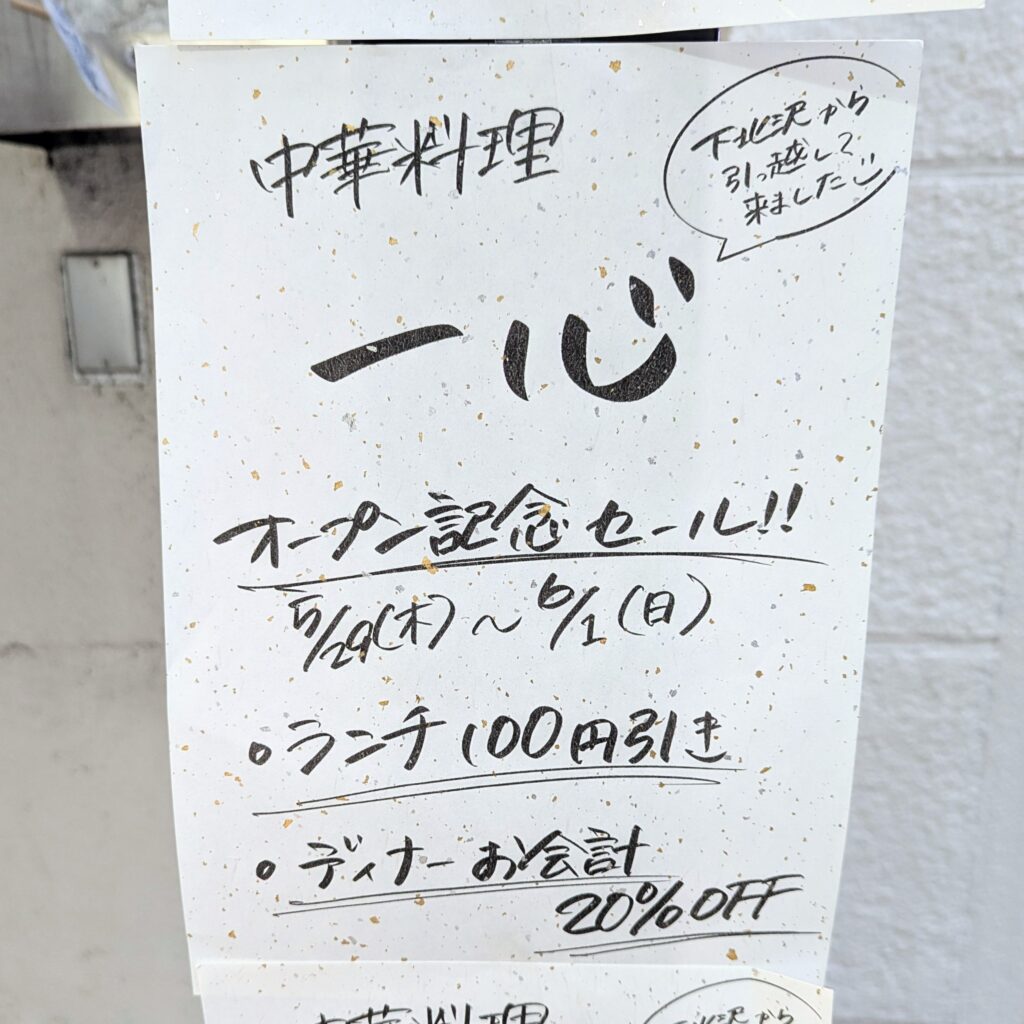 中華料理
下北沢から
引っ越して
来ました
一心
オープン記念セール!!
5/29(木)～6/1(日)
・ランチ100円引き
・ディナーお会計
20%OFF
中華料理
下北沢から